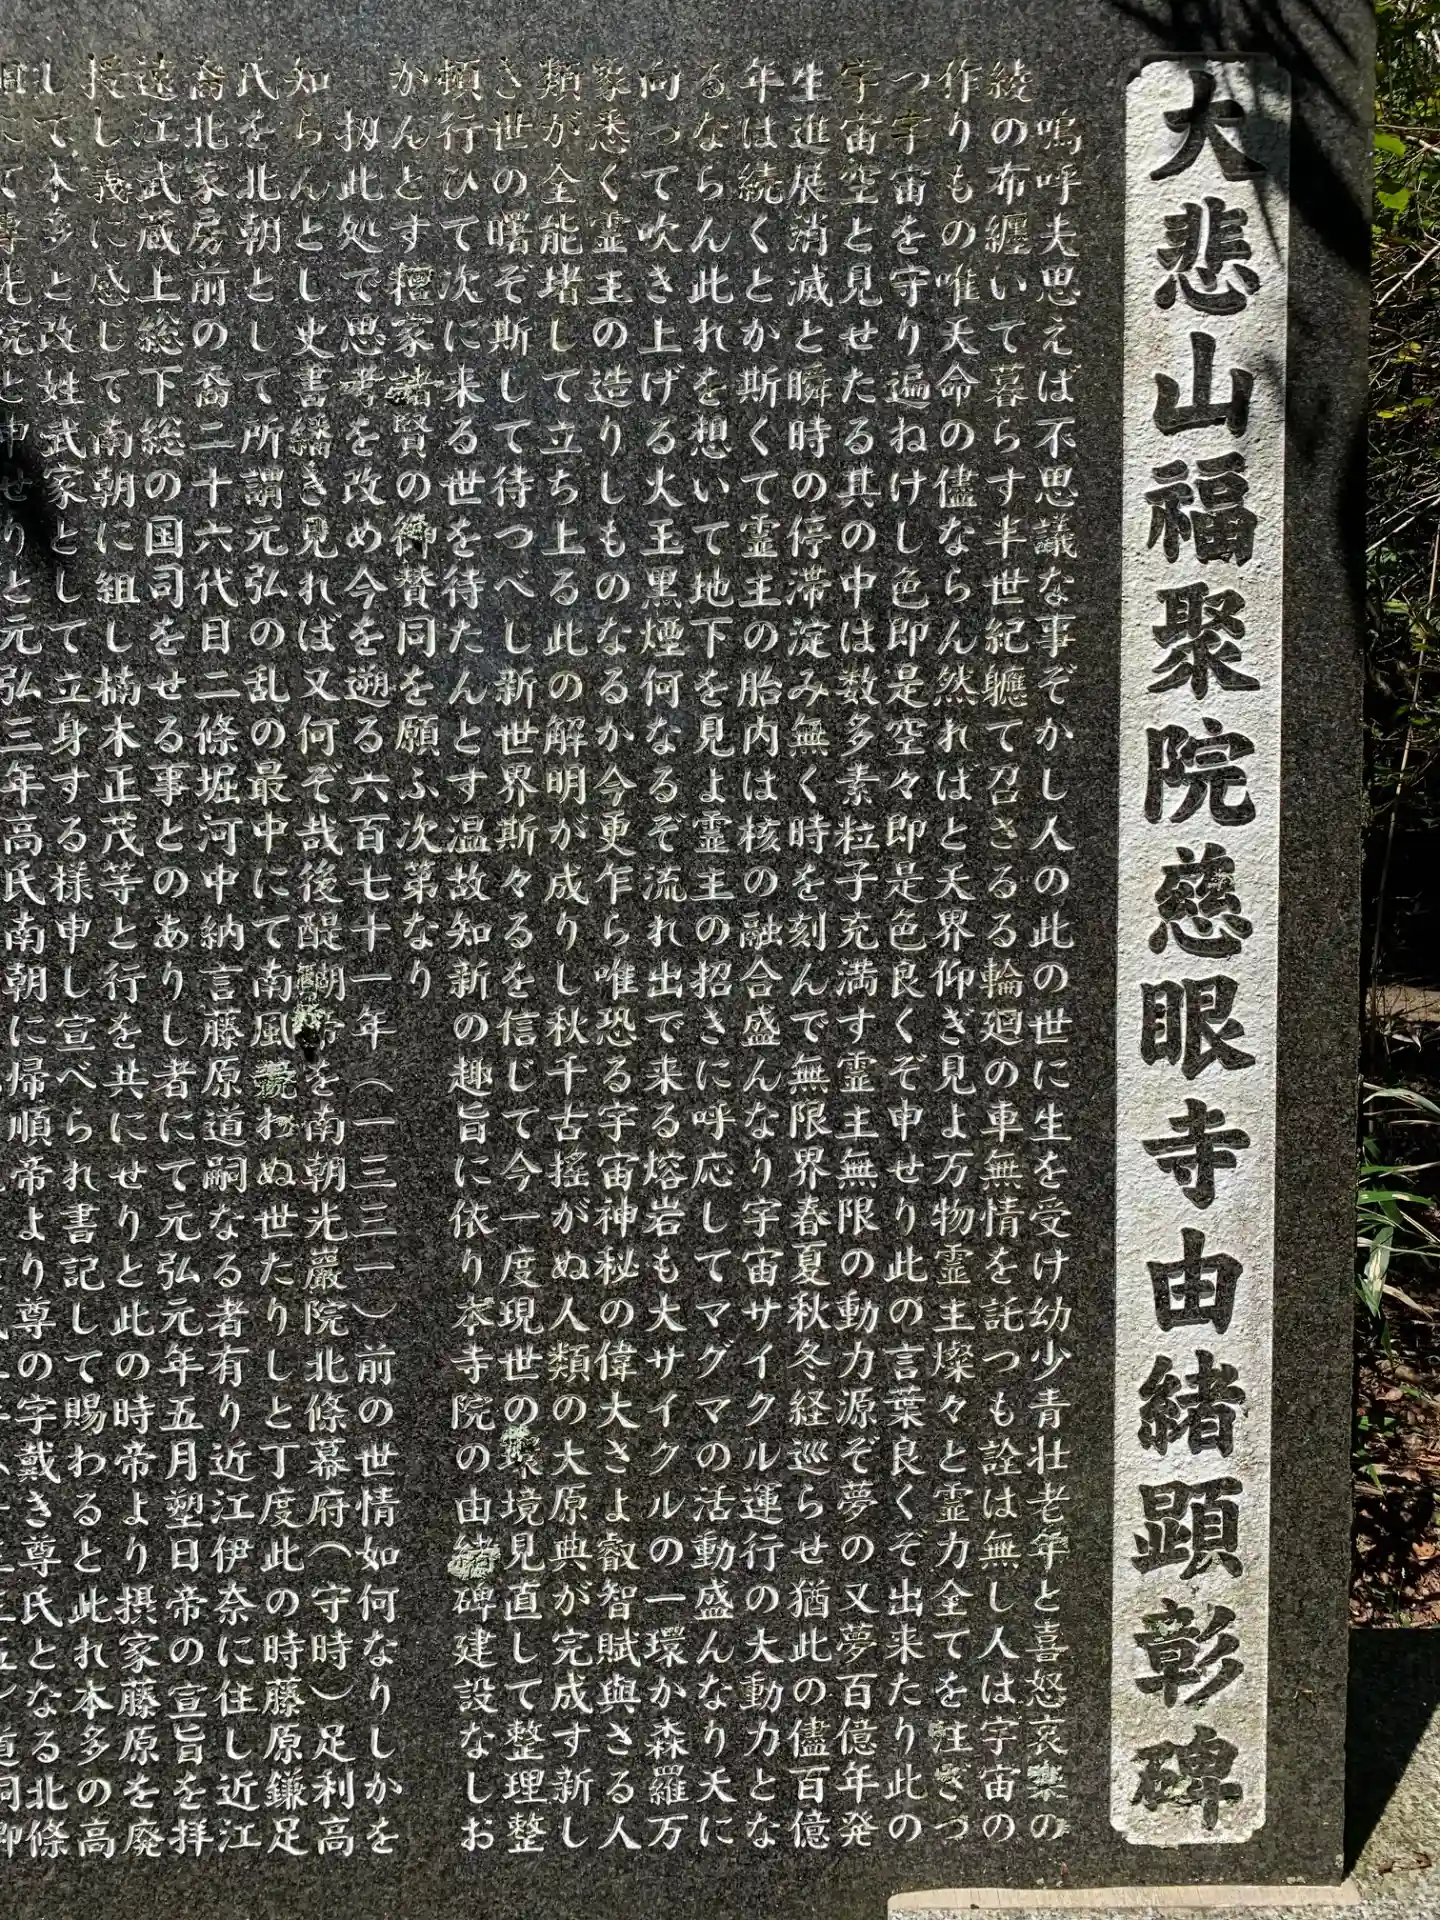 大悲山福聚院慈眼寺由緒顕彰碑
嗚呼夫思えば不思議な事ぞかし人の此の世に生を受け幼少青壮老年と喜怒哀楽の
綾の布纏いて暮らす半世紀軈て召さるる輪廻の車無情を託つも詮は無し人は宇宙の
作りもの唯天命の儘ならん然ればと天界仰ぎ見よ万物霊主燦々と霊力全てを注ぎつ
つ宇宙を守り遍ねけし色即是空々即是色良くぞ申せり此の言葉良くぞ出来たり此の
宇宙空と見せたる其の中は数多素粒子充満す霊主無限の動力源ぞ夢の又夢百億年発
生進展消滅と瞬時の停滞淀み無く時を刻んで無限界春夏秋冬経巡らせ猶此の儘百億
年は続くとか斯くて霊主の胎内は核の融合盛んなり宇宙サイクル運行の大動力とな
るならん此れを想いて地下を見よ霊主の招きに呼応してマグマの活動盛んなり天に
向って吹き上げる火玉黒煙何なるぞ流れ出で来る熔岩も大サイクルの一環か森羅万
家悉く霊主の造りしものなるか今更乍ら唯恐る宇宙神秘の偉大さよ叡智賦與さる人
類が全能堵して立ち上る此の解明が成りし秋千古揺がぬ人類の大原典が完成す新し
き世の曙ぞ斯して待つべし新世界斯々るを信じて今一度現世の環境見直して整理整
頓行ひて次に来る世を待たんとす温故知新の趣旨に依り本寺院の由緒碑建設なしお
かんとす檀家諸賢の御賛同を願ふ次第なり
扨此処で思考を改め今を遡る六百七十一年（一三三一）前の世情如何なりしかを
知らんとし史書繙き見れば又何ぞ哉後醍醐帝を南朝光巖院北條幕府（守時）足利高
氏を北朝として所謂元弘の乱の最中にて南風競わぬ世たりしと丁度此の時藤原鎌足
裔北家房前の裔二十六代目二條堀河中納言藤原道嗣なる者有り近江伊奈に住し近江
遠江武蔵上総下総の国司をせる事とのありし者にて元弘元年五月塑日帝の宣旨を拝
授し義に感じて南朝に組し楠木正茂等と行を共にせりと此の時帝より摂家藤原を廃
して本多と改姓武家として立身する様申し宣べられ書記して賜わると此れ本多の高
祖にて尊光院と申せりと元弘三年高氏南朝に帰順し帝より尊の字戴き尊氏となる北條